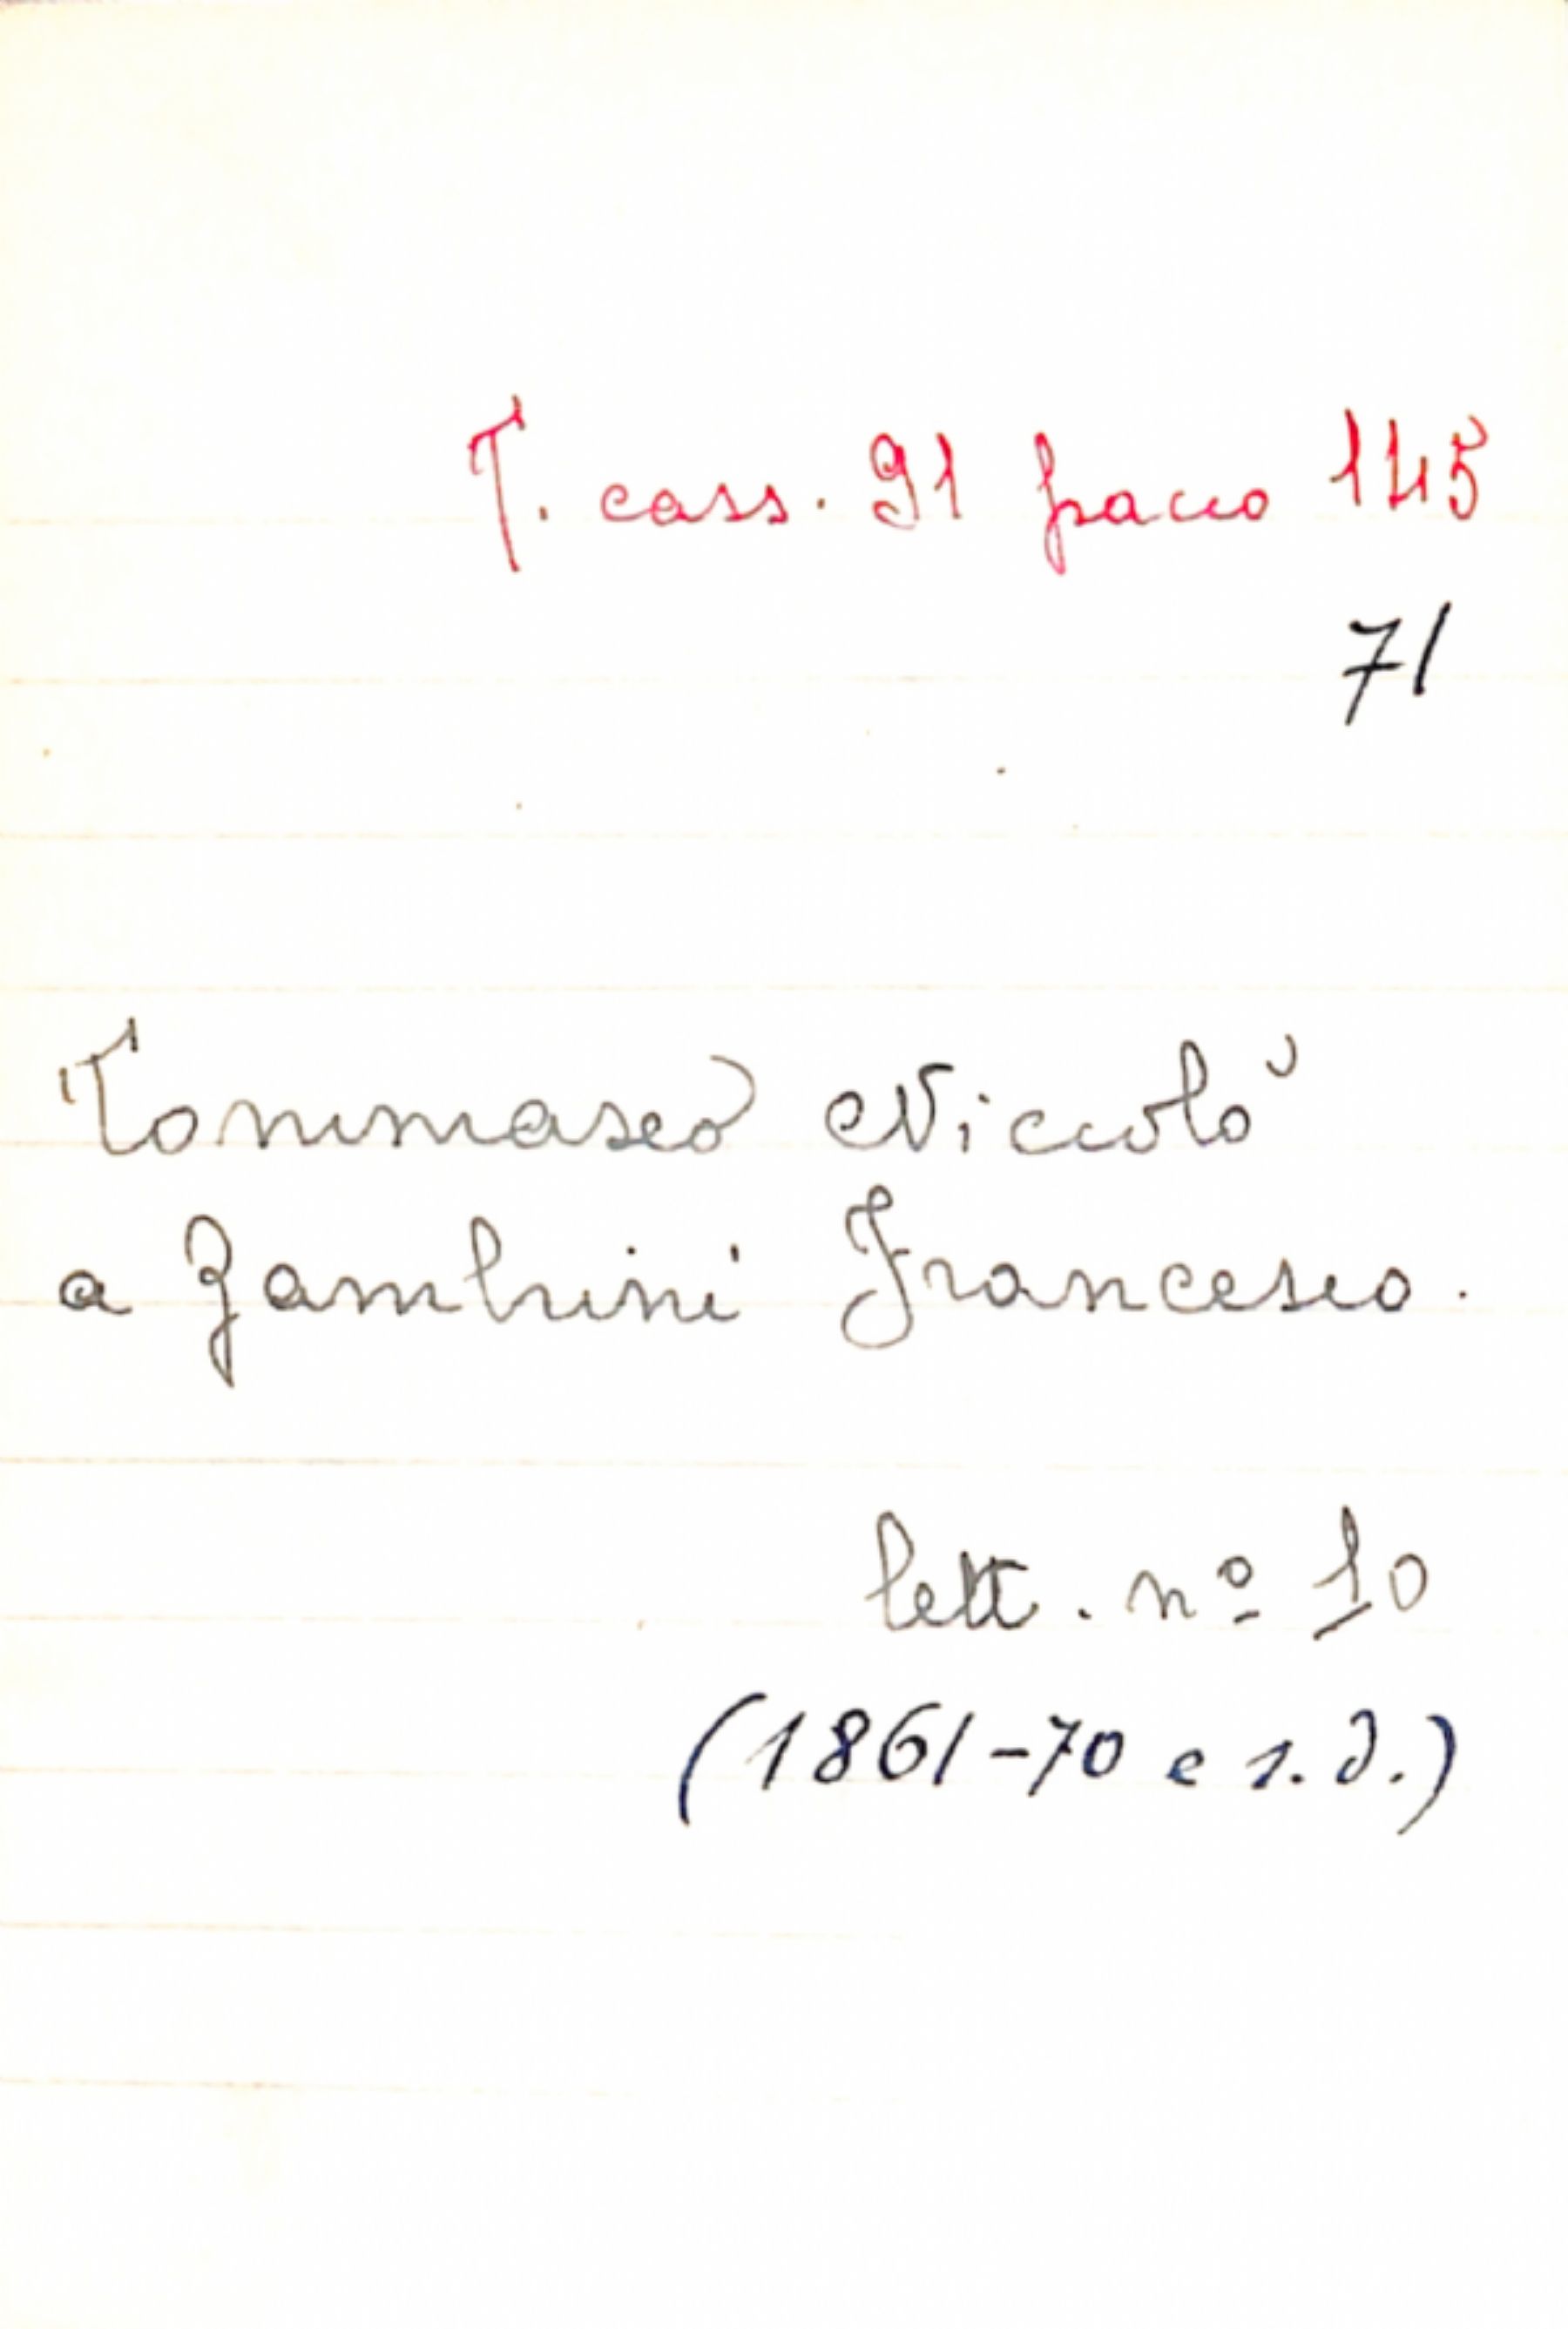 T. cass. 91 pacco 145
71
Tommaseo Niccolò
a Zambrini Francesco.
lett. nº 10
(1861-70 e s.d.)